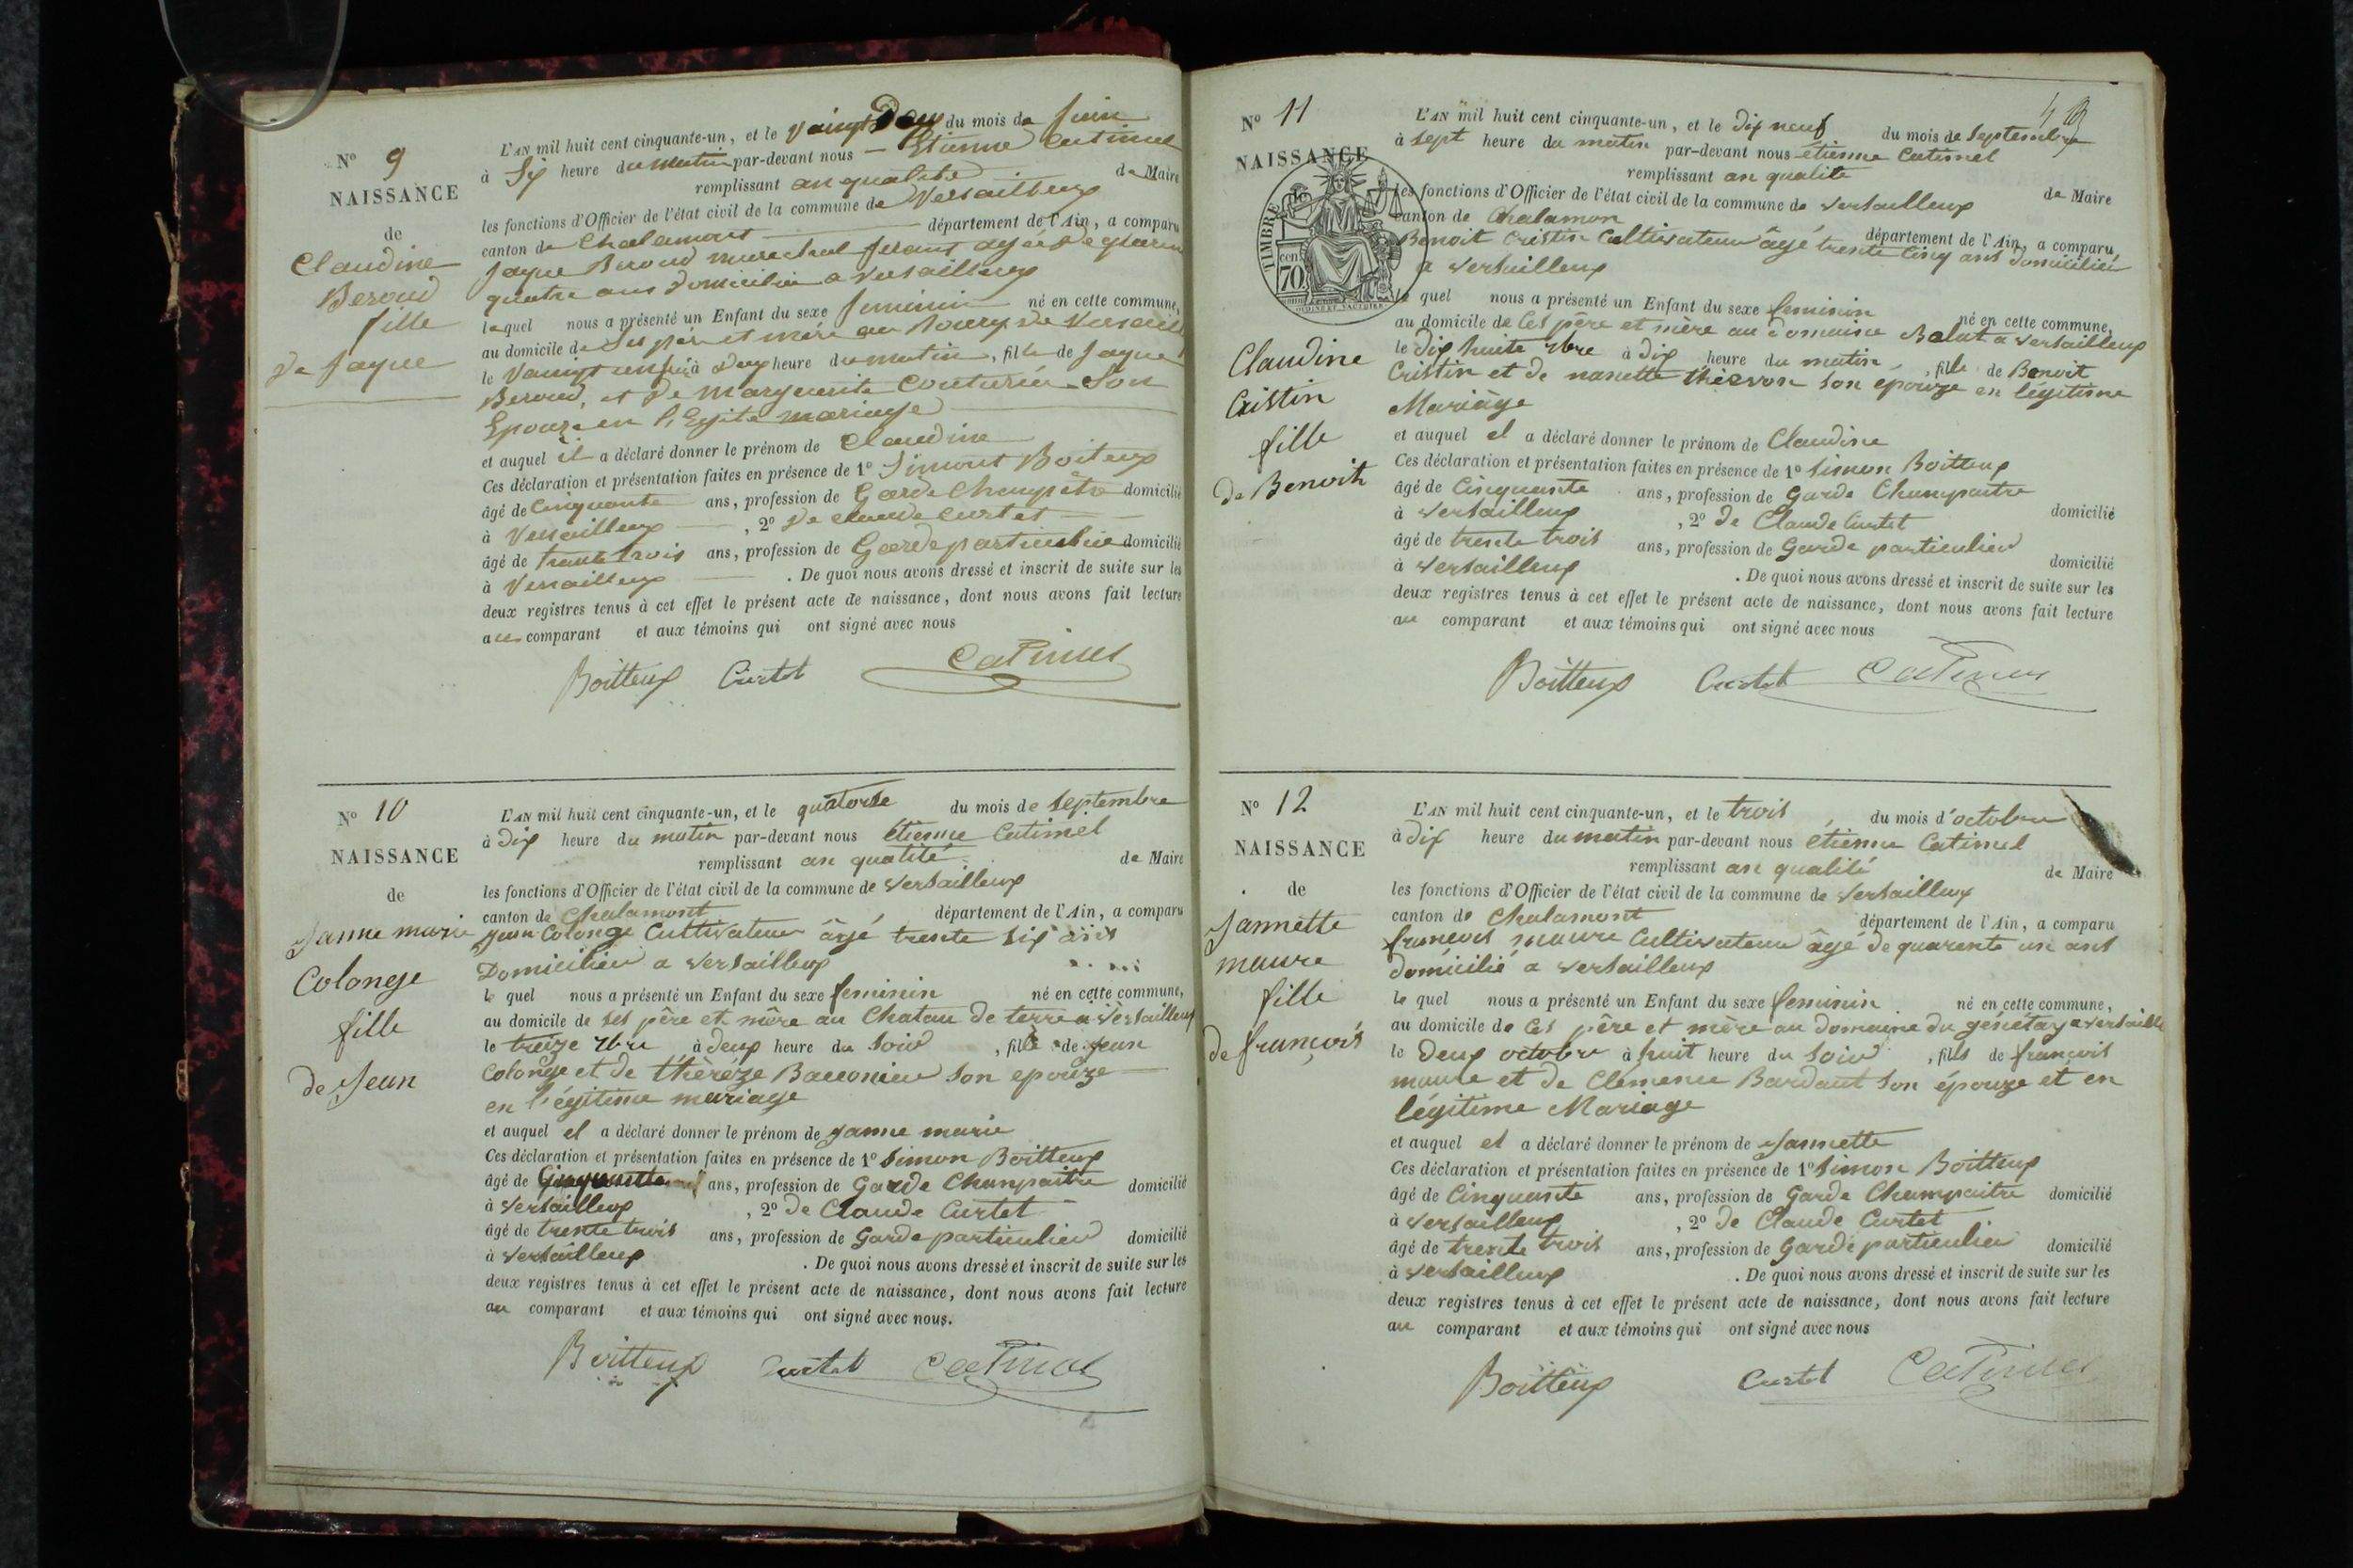 N° 9
NAISSANCE
de
Claudine
Beroud
fille
de Jaque
L'AN mil huit cent cinquante-un, et le vaingt Deux du mois de Juin
à Six heure du matin par-devant nous — Etienne Catimel
remplissant an qualité de Maire
les fonctions d'Officier de l'état civil de la commune de Versailleux
canton de Chalamont département de l'Ain, a comparu
Jaque Beroud marechal ferant agée de quarante
quatre ans domicilié a Versailleux
lequel nous a présenté un Enfant du sexe feminin né en cette commune,
au domicile de ses père et mère au bourg de Versailleux
le Vaingt un juin à deux heure du matin, fille de Jaque
Beroud, et de Marguerite Couturier Son
Epouze en légite mariage
et auquel il a déclaré donner le prénom de Claudine
Ces déclaration et présentation faites en présence de 1° Simont Boiteux
âgé de Cinquante ans, profession de Garde Champêtre domicilié
à Versailleux, 2° De claude Curtet
âgé de trente trois ans, profession de Garde particulier domicilié
à Versailleux. De quoi nous avons dressé et inscrit de suite sur les
deux registres tenus à cet effet le présent acte de naissance, dont nous avons fait lecture
au comparant et aux témoins qui ont signé avec nous
Boitteux Curtet Catimel
N° 10
NAISSANCE
de
Janne marie
Colonge
fille
de Jean
L'AN mil huit cent cinquante-un, et le quatorze du mois de septembre
à dix heure du matin par-devant nous étienne Catimel
remplissant an qualité de Maire
les fonctions d'Officier de l'état civil de la commune de Versailleux
canton de Chalamont département de l'Ain, a comparu
Jean Colonge Cultivateur âgé trente six ans
Domicilier a Versailleux
le quel nous a présenté un Enfant du sexe feminin né en cette commune,
au domicile de ses père et mère au Chatau de terre a Versailleux
le treize 7bre à deux heure du soir, fille de Jean
Colonge et de thérèze Baconier son epouze
en légitime mariage
et auquel el a déclaré donner le prénom de Janne marie
Ces déclaration et présentation faites en présence de 1° Simon Boitteux
âgé de Cinquante ans, profession de Garde Champaitre domicilié
à Versailleux, 2° de Claude Curtet
âgé de trente trois ans, profession de Garde particulier domicilié
à Versailleux. De quoi nous avons dressé et inscrit de suite sur les
deux registres tenus à cet effet le présent acte de naissance, dont nous avons fait lecture
au comparant et aux témoins qui ont signé avec nous.
Boitteux Curtet Catimel
N° 11
NAISSANCE
TIMBRE
70
Claudine
Cristin
fille
de Benoit
L'AN mil huit cent cinquante-un, et le dix neuf du mois de septembre
à sept heure du matin par-devant nous étienne Catimel
remplissant an qualité de Maire
les fonctions d'Officier de l'état civil de la commune de Versailleux
canton de Chalamon département de l'Ain, a comparu
Benoit Cristin Cultivateur âgé trente cinq ans domicilier
a Versailleux
le quel nous a présenté un Enfant du sexe feminin né en cette commune,
au domicile de Ces père et mère au domaine Balut a Versailleux
le dix huite 7bre à dix heure du matin, fille de Benoit
Cristin et de nanette son epouze en légitime
Mariage
et auquel el a déclaré donner le prénom de Claudine
Ces déclaration et présentation faites en présence de 1° Simon Boitteux
âgé de Cinquante ans, profession de Garde Champaitre domicilié
à Versailleux, 2° de Claude Curtet
âgé de trente trois ans, profession de Garde particulier domicilié
à Versailleux. De quoi nous avons dressé et inscrit de suite sur les
deux registres tenus à cet effet le présent acte de naissance, dont nous avons fait lecture
au comparant et aux témoins qui ont signé avec nous
Boitteux Curtet Catimel
N° 12
NAISSANCE
de
Jannette
maure
fille
de françois
L'AN mil huit cent cinquante-un, et le trois du mois d'octobre
à dix heure du matin par-devant nous étienne Catimel
remplissant an qualité de Maire
les fonctions d'Officier de l'état civil de la commune de Versailleux
canton de Chalamont département de l'Ain, a comparu
françois maure Cultivateur âgé de quarente un ans
domicilié a Versailleux
le quel nous a présenté un Enfant du sexe feminin né en cette commune,
au domicile de Ces père et mère au domaine du génétay a versaille
le Deux octobre à huit heure du soir, fille de françois
maure et de Clémence Bardant son épouze et en
légitime Mariage
et auquel el a déclaré donner le prénom de Jannette
Ces déclaration et présentation faites en présence de 1° Simon Boitteux
âgé de Cinquante ans, profession de Garde Champaitre domicilié
à Versailleux, 2° de Claude Curtet
âgé de trente trois ans, profession de Garde particulier domicilié
à Versailleux. De quoi nous avons dressé et inscrit de suite sur les
deux registres tenus à cet effet le présent acte de naissance, dont nous avons fait lecture
au comparant et aux témoins qui ont signé avec nous
Boitteux Curtet Catimel